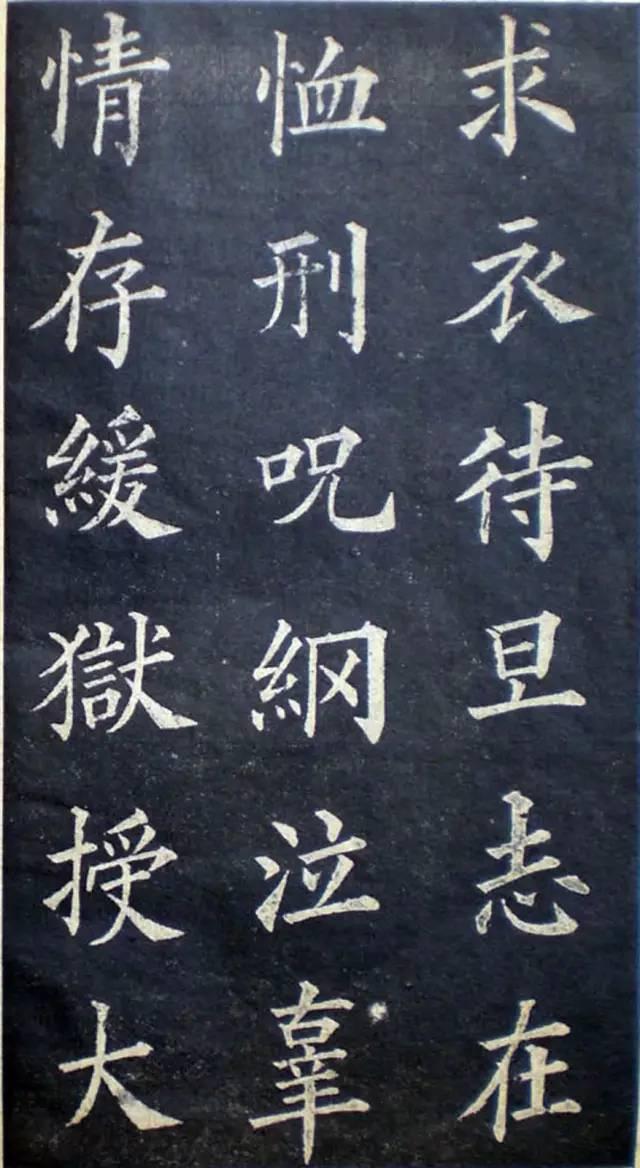 求衣待旦志在
恤刑咒網泣辜
情存緩獄授大